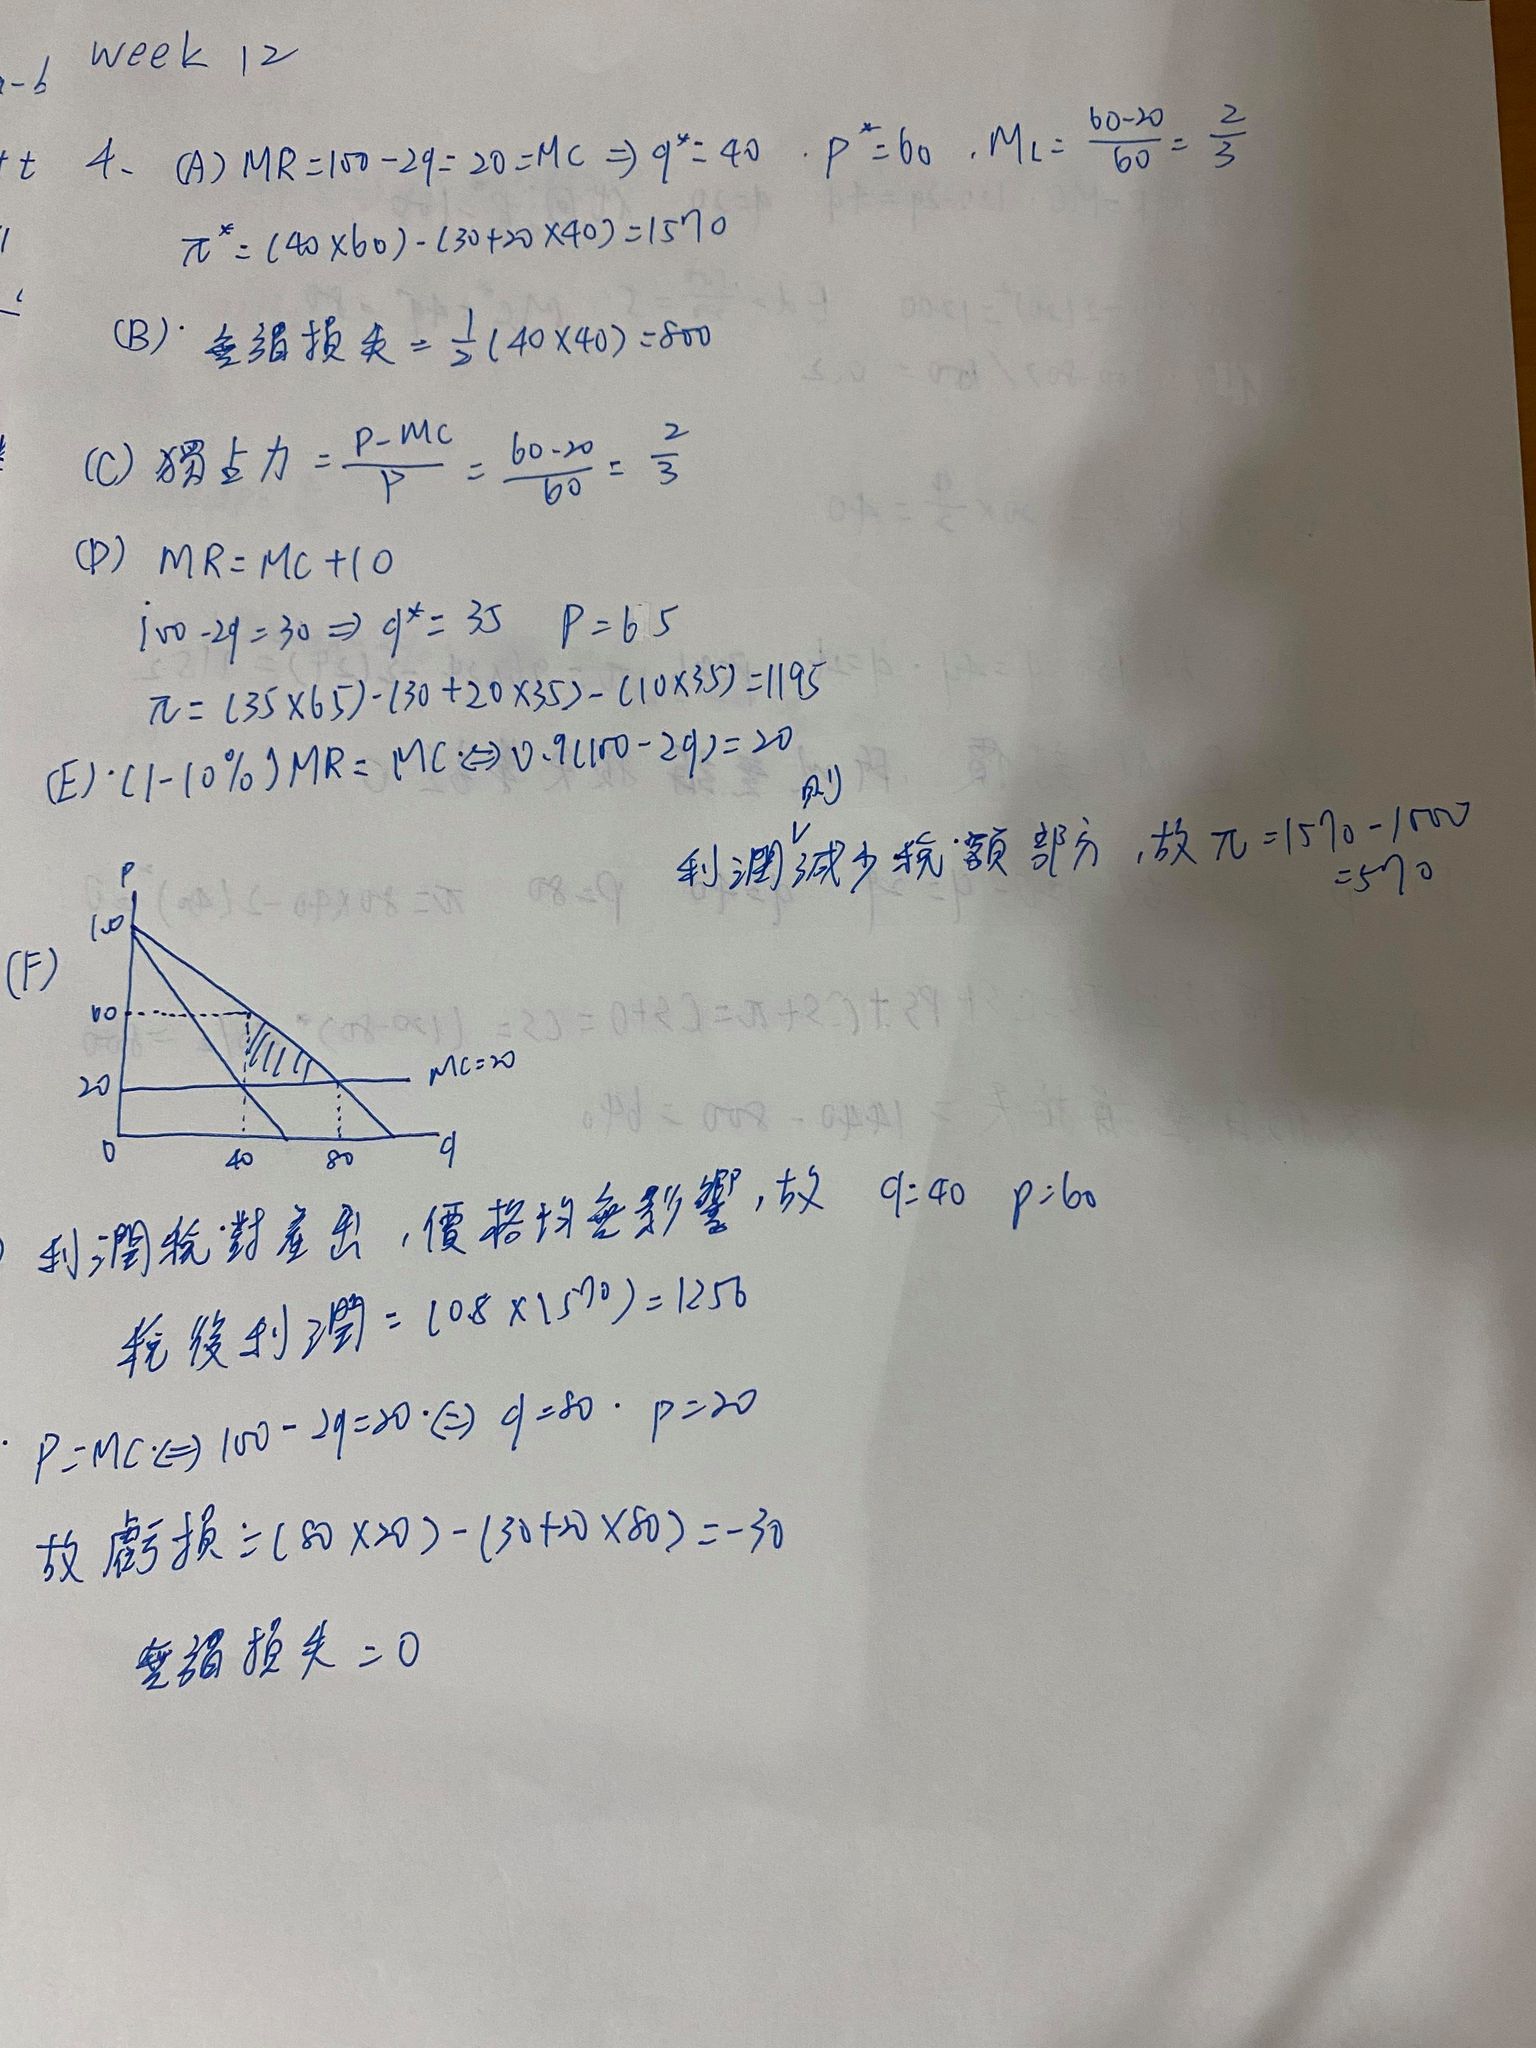 week 12
4、 (A) MR=100-2q=20=MC ⇒ q*=40 . P*=60 , ML= (60-20)/60 = 2/3
π*=(40×60)-(30+20×40)=1570
(B)· 無謂損失 = 1/2 (40×40)=800
(C) 獨占力 = (P-MC)/P = (60-20)/60 = 2/3
(D) MR=MC+10
100-2q=30 ⇒ q*=35 P=65
π=(35×65)-(30+20×35)-(10×35)=1195
(E)·(1-10%)MR=MC·⇔0.9(100-2q)=20
則
利潤減少稅額部分,故π=1570-1000
=570
(F)
P
100
60
20
0
40
80
q
MC=20
利潤稅對產出,價格均無影響,故 q=40 P=60
稅後利潤=(0.8×1570)=1256
P=MC·⇔100-2q=20·⇔ q=80· P=20
故虧損=(80×20)-(30+20×80)=-30
無謂損失=0